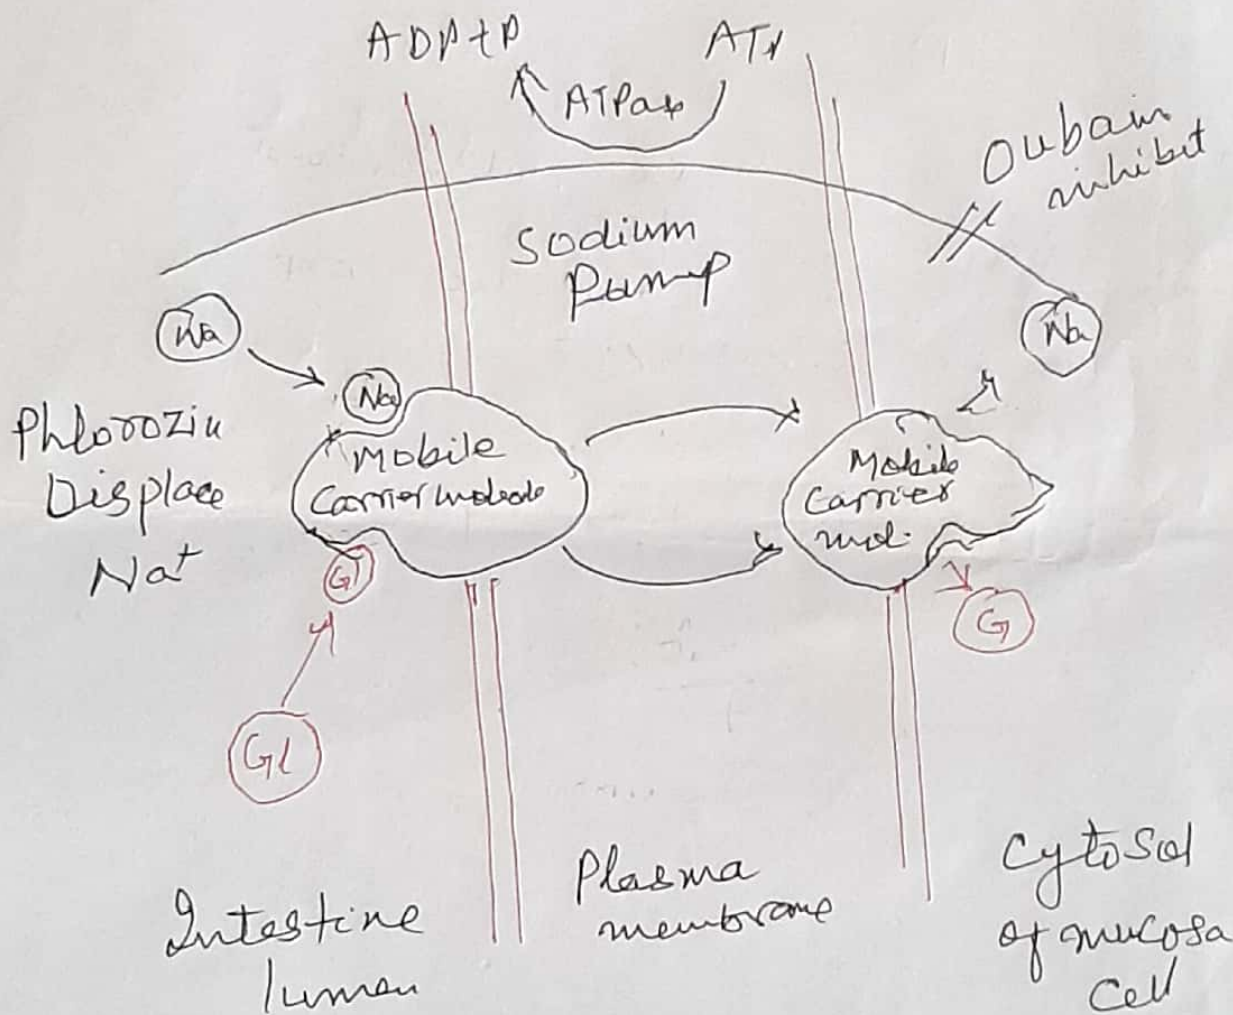 ADP+P
ATP
ATPase
Oubain
inhibit
Sodium
Pump
Na
Na
Na
Phlorozin
Displace
Na⁺
Mobile
Carrier molecule
Mobile
Carrier
mol.
Gl
G
Gl
Intestine
lumen
Plasma
membrane
Cytosol
of mucosa
Cell